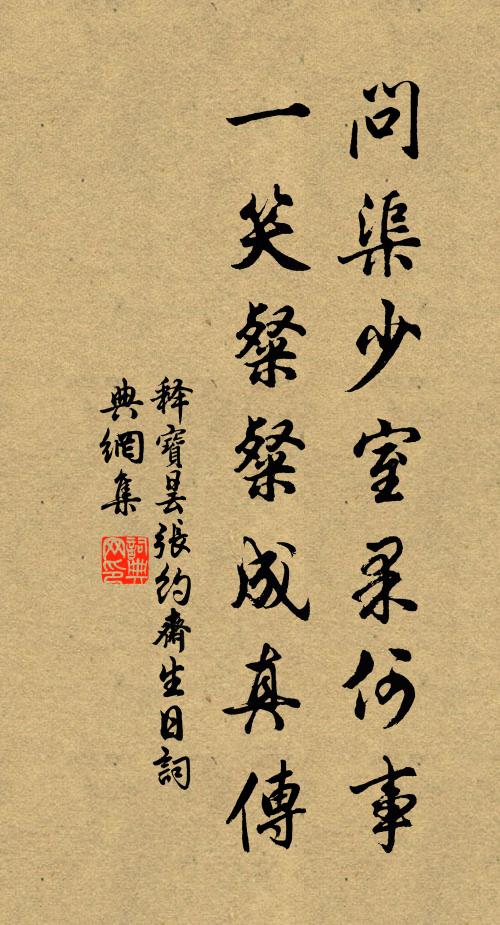 問渠少室果何事
一笑粲粲成真傳
释寶曇張約齋生日詞
典網集
詞典网印